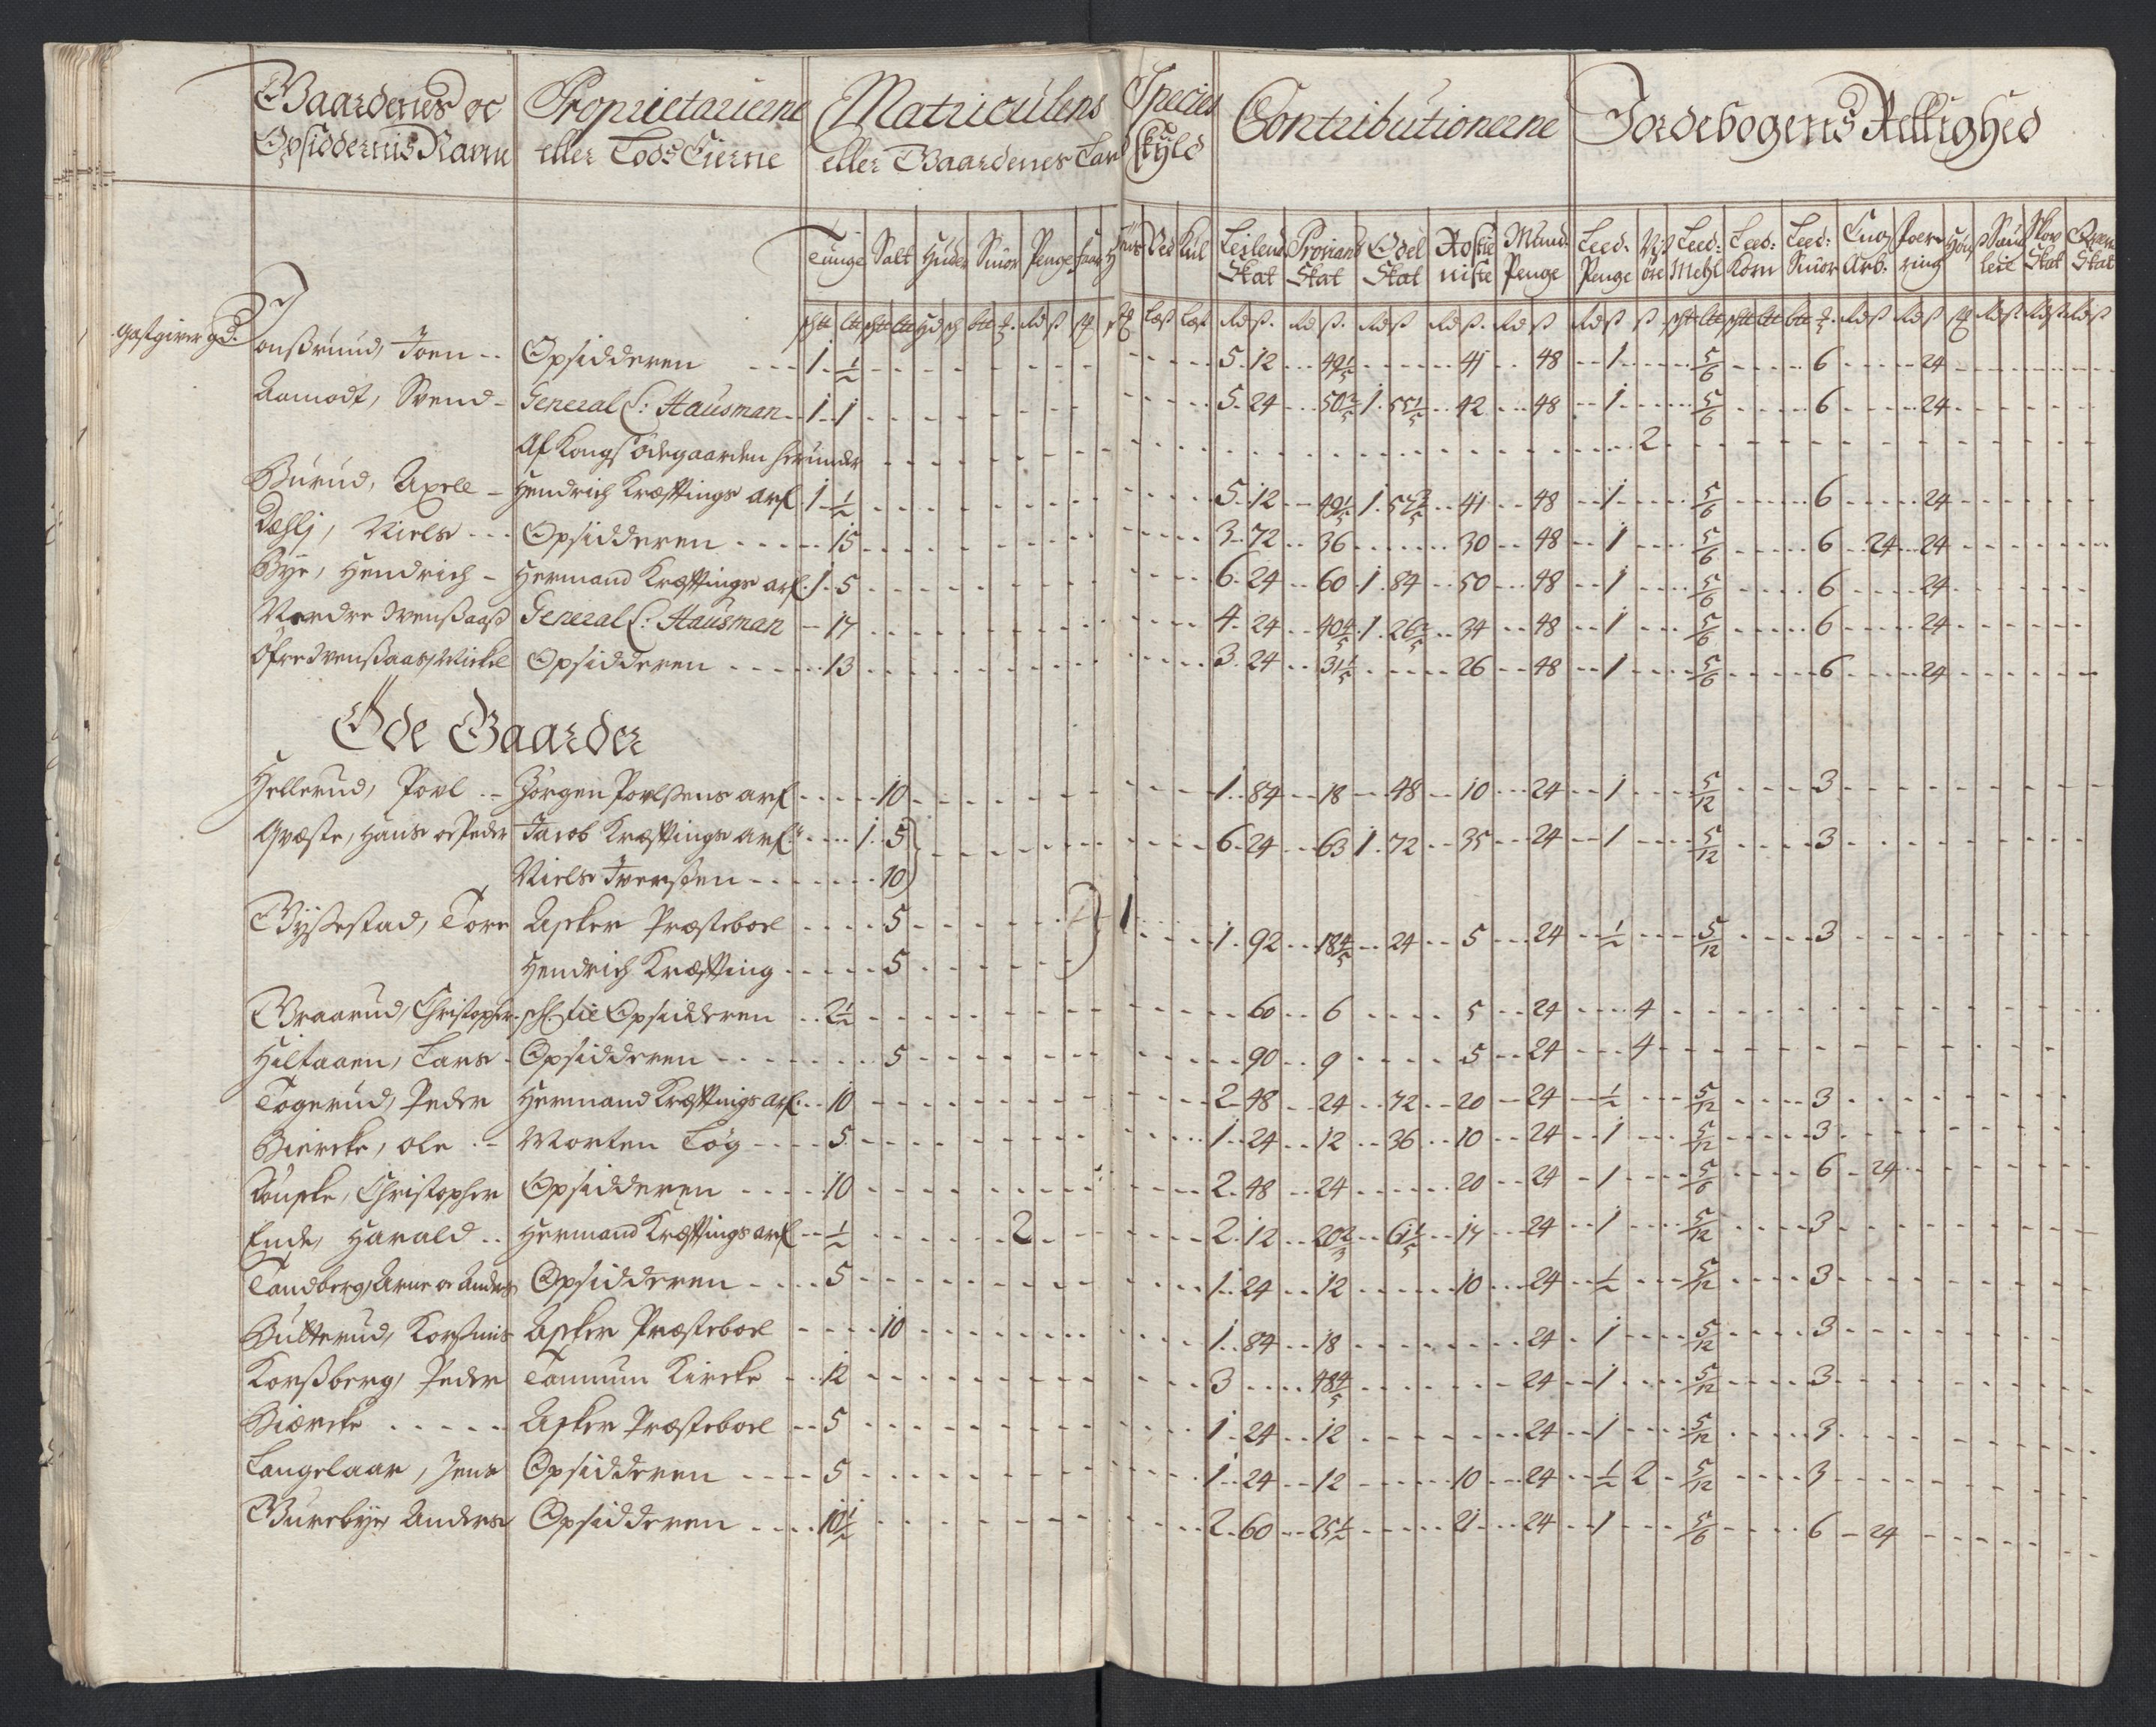 Gaardenes oc Opsiddernis Nafne | Proprietarierne eller Lods Eierne | Matriculens eller Gaardenes Land | Species Skyld | Contributionerne | Jordebogens Rettighed
Tunge | Salt | Huder | Smør | Penge | | | Ved | Kul | Leilend Skat | Proviant Skat | Odel Skat | Rostieniste | Mund Penge | Leed: Penge | Viß øre | Leed: Mehl | Leed: Korn | Leed: Smør | Lug Arb: | Foering | Høns | | Skov Skat | Qvern Skat
Gastgiver gd.
Jonßrund, Joen -- Opsidderen --- 1 - 1/2 | 5. 12 -- 49 1/5 -- 41 -- 48 -- 1 -- 5/6 -- 6 -- 24
Aamodt, Svend - General L: Hausman -- 1 - 1 | 5. 24 -- 50 2/5 1. 55 1/5 -- 42 -- 48 -- 1 -- 5/6 -- 6 -- 24
Af Kongs ödegaarden herunder | 2
Burud, Axell - Hendrich Kræftings arf. 1 - 1/2 | 5. 12 -- 49 1/5 1. 57 3/5 -- 41 -- 48 -- 1 -- 5/6 -- 6 -- 24
Dæhlj, Niels --- Opsidderen ---- 15 | 3. 72 -- 36 -- 30 -- 48 -- 1 -- 5/6 -- 6 -- 24 -- 24
Bye, Hendrich - Hermand Kræftings arf. 1. 5 | 6. 24 -- 60 1. 84 -- 50 -- 48 -- 1 -- 5/6 -- 6 -- 24
Nordre Svenßaaß General L: Hausman - 17 | 4. 24 -- 40 4/5 1. 26 2/5 -- 34 -- 48 -- 1 -- 5/6 -- 6 -- 24
Öfre Svenßaas, Mickel Opsidderen ---- 13 | 3. 24 -- 31 1/5 -- 26 -- 48 -- 1 -- 5/6 -- 6 -- 24
Öde Gaarder
Hellerud, Povl -- Jörgen Povlßens arf. ---- 10 | 1. 84 -- 18 -- 48 -- 10 -- 24 -- 1 -- 5/12 -- 3
Græste, Hans oc Peder Jacob Kræftings arf: --- 1. 5 | 6. 24 -- 63 1. 72 -- 35 -- 24 -- 1 -- 5/12 -- 3
Niels Iverßen ------ 10
Gyßestad, Tore Asker Præsteboel ---- 5 | 1 | 1. 92 -- 18 4/5 -- 24 -- 5 -- 24 -- 1/2 -- 5/12 -- 3
Hendrich Kræfting ---- 5
Graarud, Christopher. Opsidderen -- 2 1/2 | 60 -- 6 -- 5 -- 24 -- 4
Hiltaaen, Lars - Opsidderen ------ 5 | 90 -- 9 -- 5 -- 24 -- 4
Togerud, Peder Hermand Kræftings arf. -- 10 | 2. 48 -- 24 -- 72 -- 20 -- 24 -- 1/2 -- 5/12 -- 3
Biercke, Ole -- Morten Løg ---- 5 | 1. 24 -- 12 -- 36 -- 10 -- 24 -- 1 -- 5/12 -- 3
Christopher Opsidderen ---- 10 | 2. 48 -- 24 -- 20 -- 24 - 1 -- 5/6 -- 6 - 24
Ende, Harald -- Hermand Kræftings arf -- 1/2 ---- 2 | 2. 12 -- 20 2/3 -- 61 1/5 -- 17 -- 24 -- 1 -- 5/12 -- 3
Tandberg, Arne oc Anders Opsidderen ---- 5 | 1. 24 -- 12 -- 10 -- 24 -- 1/2 -- 5/12 -- 3
Bulterud, Asker Præsteboel ---- 10 | 1. 84 -- 18 -- 24 - 1 -- 5/12 -- 3
Korßberg, Peder Tannum Kircke -- 12 | 3 -- 48 4/5 -- 24 -- 1 -- 5/12 -- 3
Biørcke ----- Asker Præsteboel -- 5 | 1. 24 -- 12 -- 24 -- 1 -- 5/12 -- 3
Langelaar, Jens Opsidderen ---- 5 | 1. 24 -- 12 -- 10 -- 24 -- 1/2 2 - 5/12 -- 3
Gurebye, Anders Opsidderen ---- 10 1/2 | 2. 60 -- 25 1/5 -- 21 -- 24 -- 1 -- 5/6 -- 6 - 24